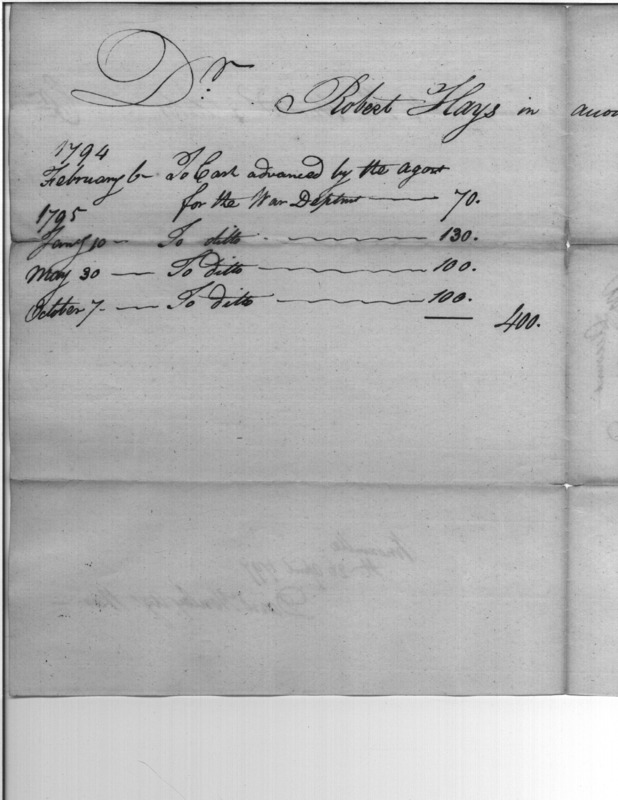 Dr.
Robert Hays in accou
1794
February 6 To Cash advanced by the agent
for the War Deptmt 70.
1795
Jany 10 To ditto 130.
May 30 To ditto 100.
October 7 To ditto 100.
400.